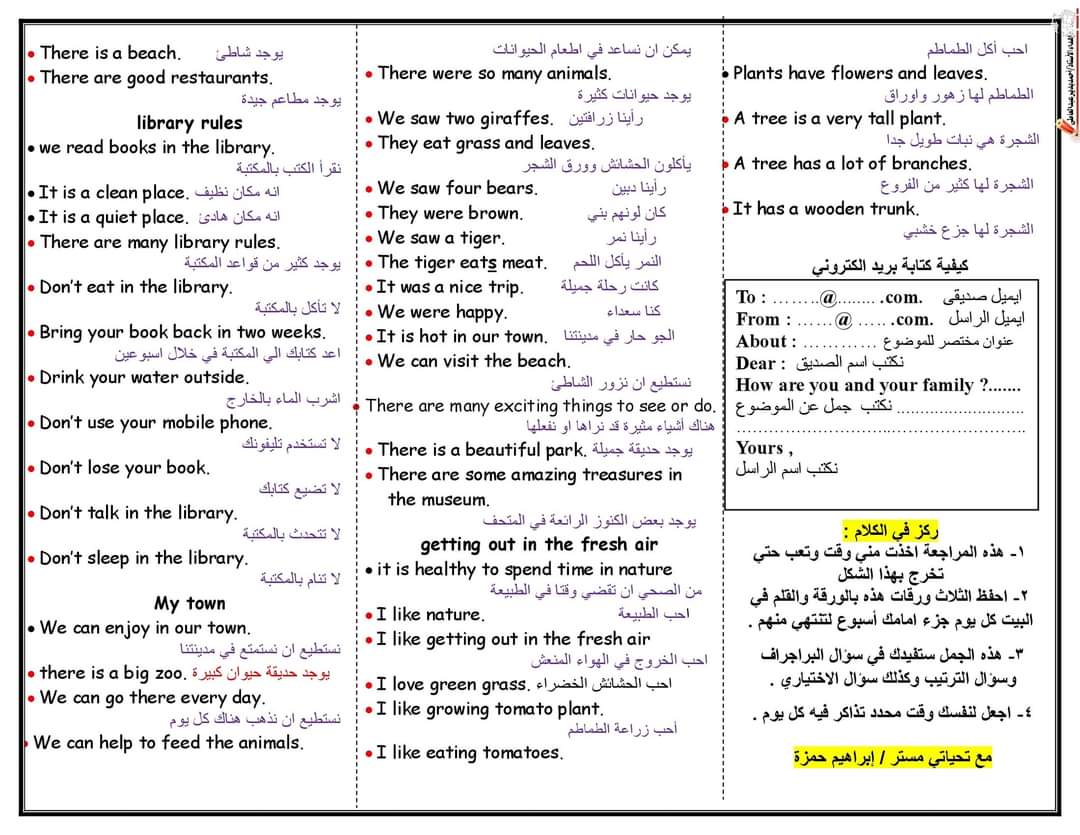 There is a beach. يوجد شاطئ
There are good restaurants.
يوجد مطاعم جيدة
library rules
we read books in the library.
نقرأ الكتب بالمكتبة
It is a clean place. انه مكان نظيف
It is a quiet place. انه مكان هادئ
There are many library rules.
يوجد كثير من قواعد المكتبة
Don't eat in the library.
لا تأكل بالمكتبة
Bring your book back in two weeks.
اعد كتابك الي المكتبة في خلال اسبوعين
Drink your water outside.
اشرب الماء بالخارج
Don't use your mobile phone.
لا تستخدم تليفونك
Don't lose your book.
لا تضيع كتابك
Don't talk in the library.
لا تتحدث بالمكتبة
Don't sleep in the library.
لا تنام بالمكتبة
My town
We can enjoy in our town.
نستطيع ان نستمتع في مدينتنا
there is a big zoo. يوجد حديقة حيوان كبيرة
We can go there every day.
نستطيع ان نذهب هناك كل يوم
We can help to feed the animals.
يمكن ان نساعد في اطعام الحيوانات
There were so many animals.
يوجد حيوانات كثيرة
We saw two giraffes. رأينا زرافتين
They eat grass and leaves.
يأكلون الحشائش وورق الشجر
We saw four bears. رأينا دبين
They were brown. كان لونهم بني
We saw a tiger. رأينا نمر
The tiger eats meat. النمر يأكل اللحم
It was a nice trip. كانت رحلة جميلة
We were happy. كنا سعداء
It is hot in our town. الجو حار في مدينتنا
We can visit the beach.
نستطيع ان نزور الشاطئ
There are many exciting things to see or do.
هناك أشياء مثيرة قد نراها او نفعلها
There is a beautiful park. يوجد حديقة جميلة
There are some amazing treasures in
the museum.
يوجد بعض الكنوز الرائعة في المتحف
getting out in the fresh air
it is healthy to spend time in nature
من الصحي ان تقضي وقتا في الطبيعة
I like nature. احب الطبيعة
I like getting out in the fresh air
احب الخروج في الهواء المنعش
I love green grass. احب الحشائش الخضراء
I like growing tomato plant.
أحب زراعة الطماطم
I like eating tomatoes.
احب أكل الطماطم
Plants have flowers and leaves.
الطماطم لها زهور واوراق
A tree is a very tall plant.
الشجرة هي نبات طويل جدا
A tree has a lot of branches.
الشجرة لها كثير من الفروع
It has a wooden trunk.
الشجرة لها جزع خشبي
كيفية كتابة بريد الكتروني
To : ……..@........ .com. ايميل صديقى
From : ……@ ….. .com. ايميل الراسل
About : ………… عنوان مختصر للموضوع
Dear : نكتب اسم الصديق
How are you and your family ?.......
نكتب جمل عن الموضوع ...........................
………………………..…………………….
Yours ,
نكتب اسم الراسل
ركز في الكلام :
١- هذه المراجعة اخذت مني وقت وتعب حتي
تخرج بهذا الشكل
٢- احفظ الثلاث ورقات هذه بالورقة والقلم في
البيت كل يوم جزء امامك أسبوع لتنتهي منهم .
٣- هذه الجمل ستفيدك في سؤال البراجراف
وسؤال الترتيب وكذلك سؤال الاختياري .
٤- اجعل لنفسك وقت محدد تذاكر فيه كل يوم .
مع تحياتي مستر / إبراهيم حمزة